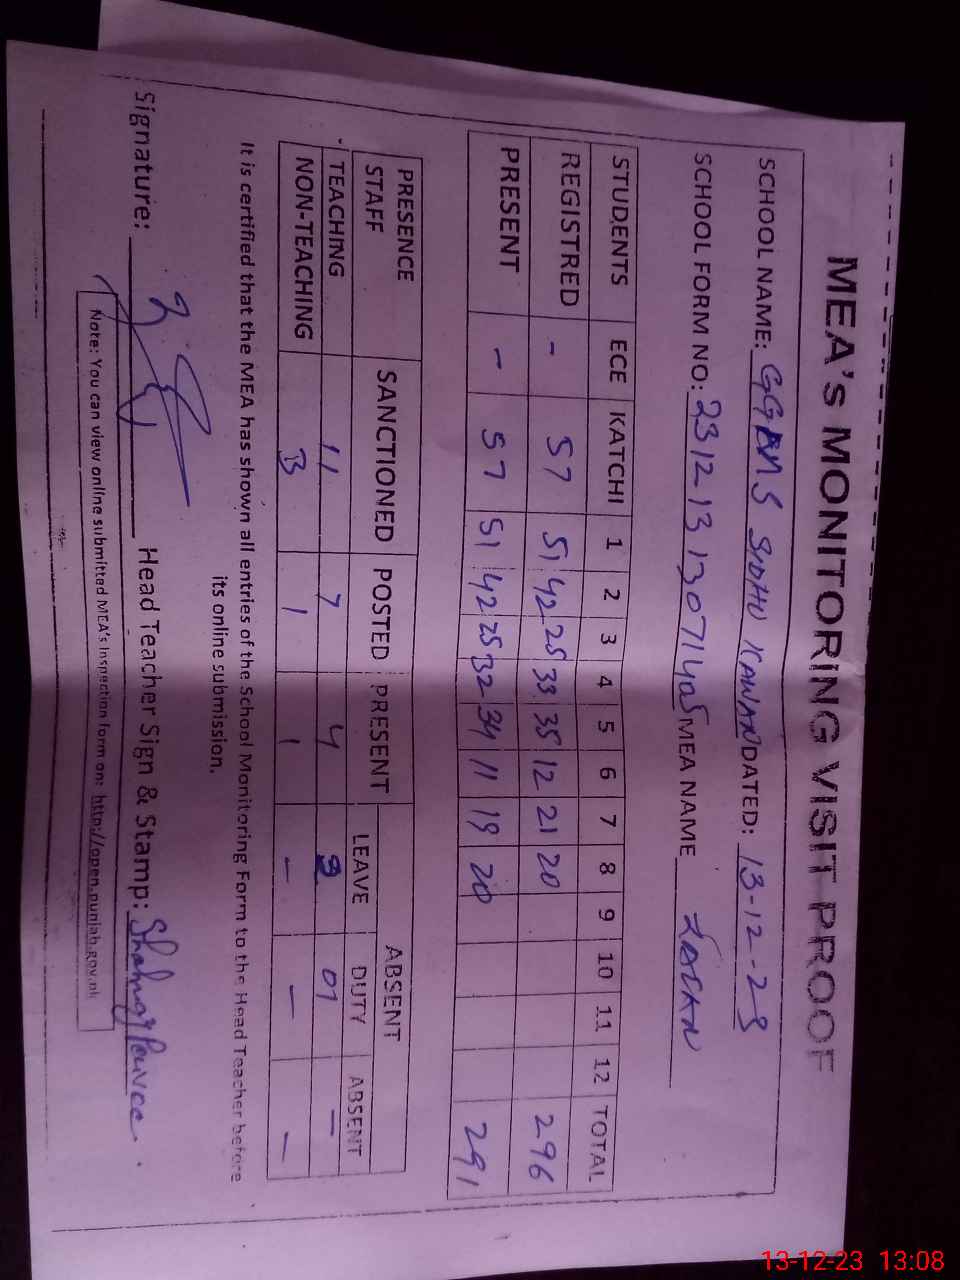 MEA's MONITORING VISIT PROOF
SCHOOL NAME: SIDHU DATED: 13-12-23
SCHOOL FORM NO: MEA NAME
STUDENTS ECE KATCHI 1 2 3 4 5 6 7 8 9 10 11 12 TOTAL
REGISTRED - 57 51 42 25 33 35 12 21 20 296
PRESENT - 57 51 42 25 32 34 11 19 20 291
PRESENCE STAFF SANCTIONED POSTED PRESENT ABSENT
LEAVE DUTY ABSENT
TEACHING 11 7 4 01 -
NON-TEACHING 1 1 - - -
It is certified that the MEA has shown all entries of the School Monitoring Form to the Head Teacher before
its online submission.
Signature: Head Teacher Sign & Stamp:
Note: You can view online submitted MEA's Inspection form on: http://open.punjab.gov.pk
13-12-23 13:08